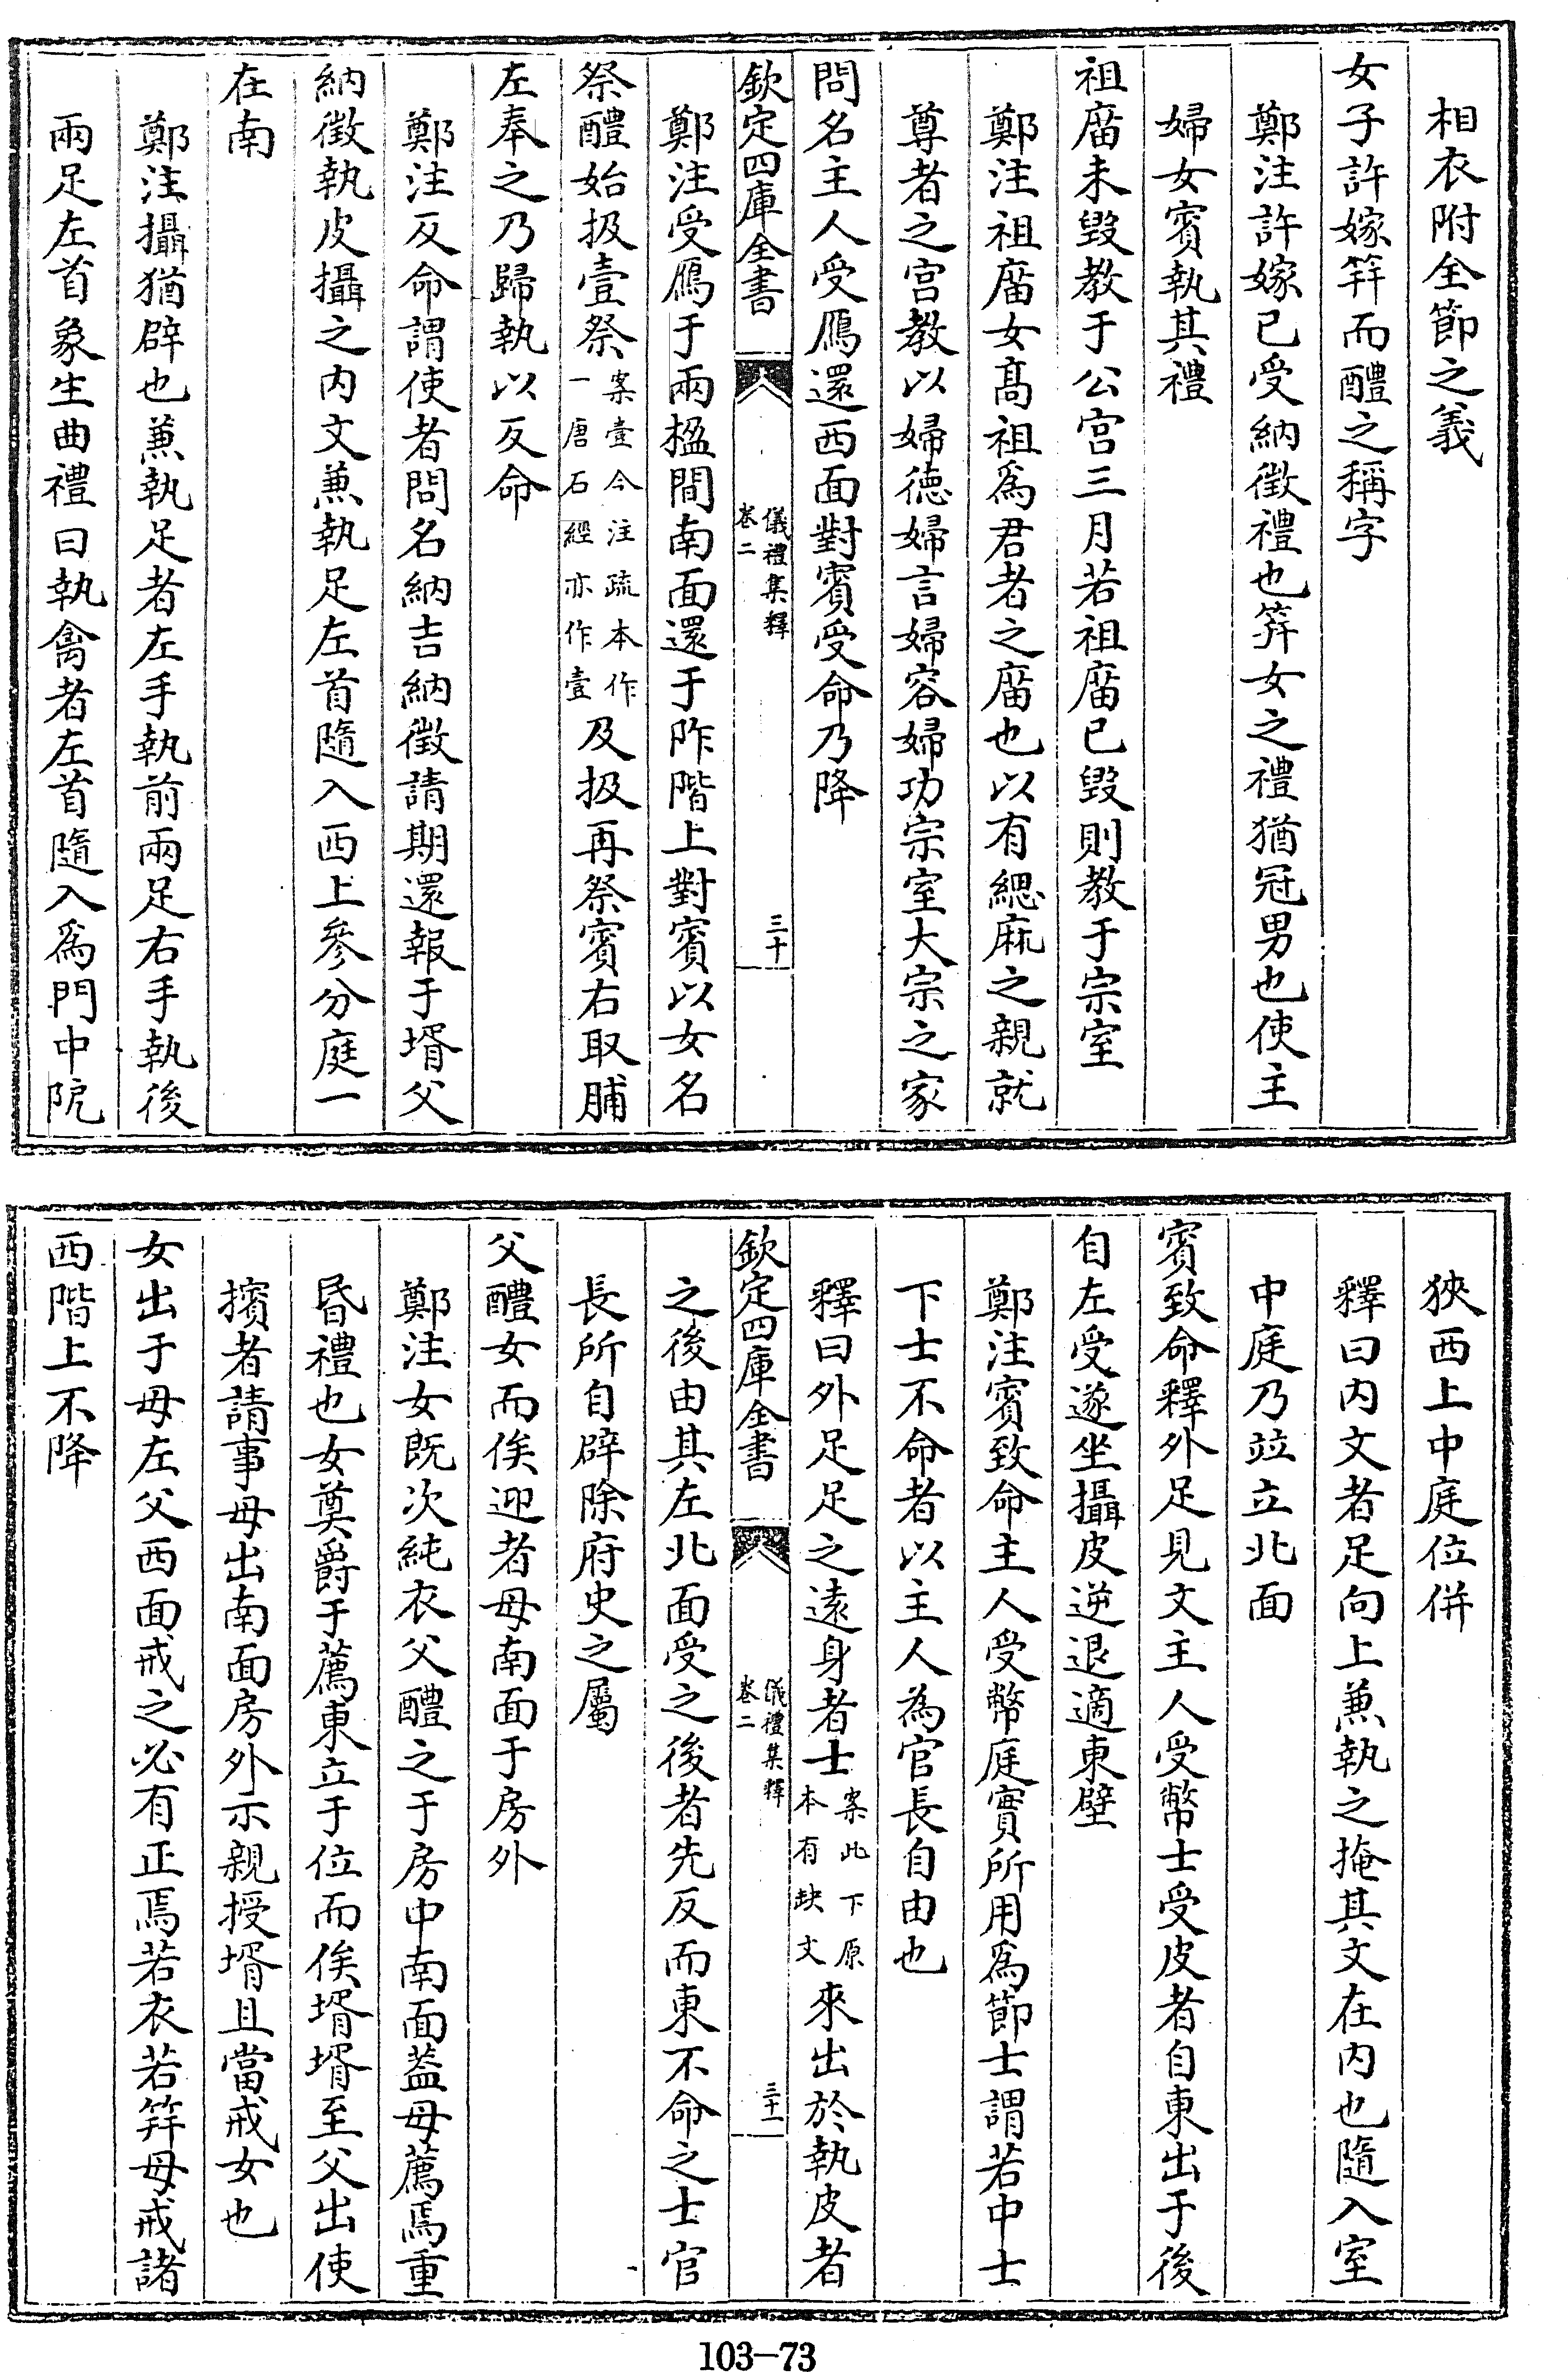 相衣附全節之義
女子許嫁笄而醴之稱字
鄭注許嫁已受納徵禮也笄女之禮猶冠男也使主
婦女賓執其禮
祖廟未毀教于公宫三月若祖廟已毀則教于宗室
鄭注祖廟女髙祖爲君者之廟也以有緦麻之親就
尊者之宫教以婦徳婦言婦容婦功宗室大宗之家
問名主人受鴈還西面對賓受命乃降
欽定四庫全書
儀禮集釋
卷二
三十
鄭注受鴈于兩楹間南面還于阼階上對賓以女名
祭醴始扱壹祭案壹今注疏本作一唐石經亦作壹及扱再祭賓右取脯
左奉之乃歸執以反命
鄭注反命謂使者問名納吉納徵請期還報于壻父
納徵執皮攝之内文兼執足左首隨入西上參分庭一
在南
鄭注攝猶辟也兼執足者左手執前兩足右手執後
兩足左首象生曲禮曰執禽者左首隨入爲門中阨
狹西上中庭位併
釋曰内文者足向上兼執之掩其文在内也隨入室
中庭乃竝立北面
賓致命釋外足見文主人受幣士受皮者自東出于後
自左受遂坐攝皮逆退適東壁
鄭注賓致命主人受幣庭實所用爲節士謂若中士
下士不命者以主人為官長自由也
釋曰外足足之遠身者士案此下原本有缺文來出於執皮者
欽定四庫全書
儀禮集釋
卷二
三十一
之後由其左北面受之後者先反而東不命之士官
長所自辟除府史之屬
父醴女而俟迎者母南面于房外
鄭注女既次純衣父醴之于房中南面蓋母薦焉重
昏禮也女奠爵于薦東立于位而俟壻壻至父出使
擯者請事母出南面房外示親授壻且當戒女也
女出于母左父西面戒之必有正焉若衣若笄母戒諸
西階上不降
103—73